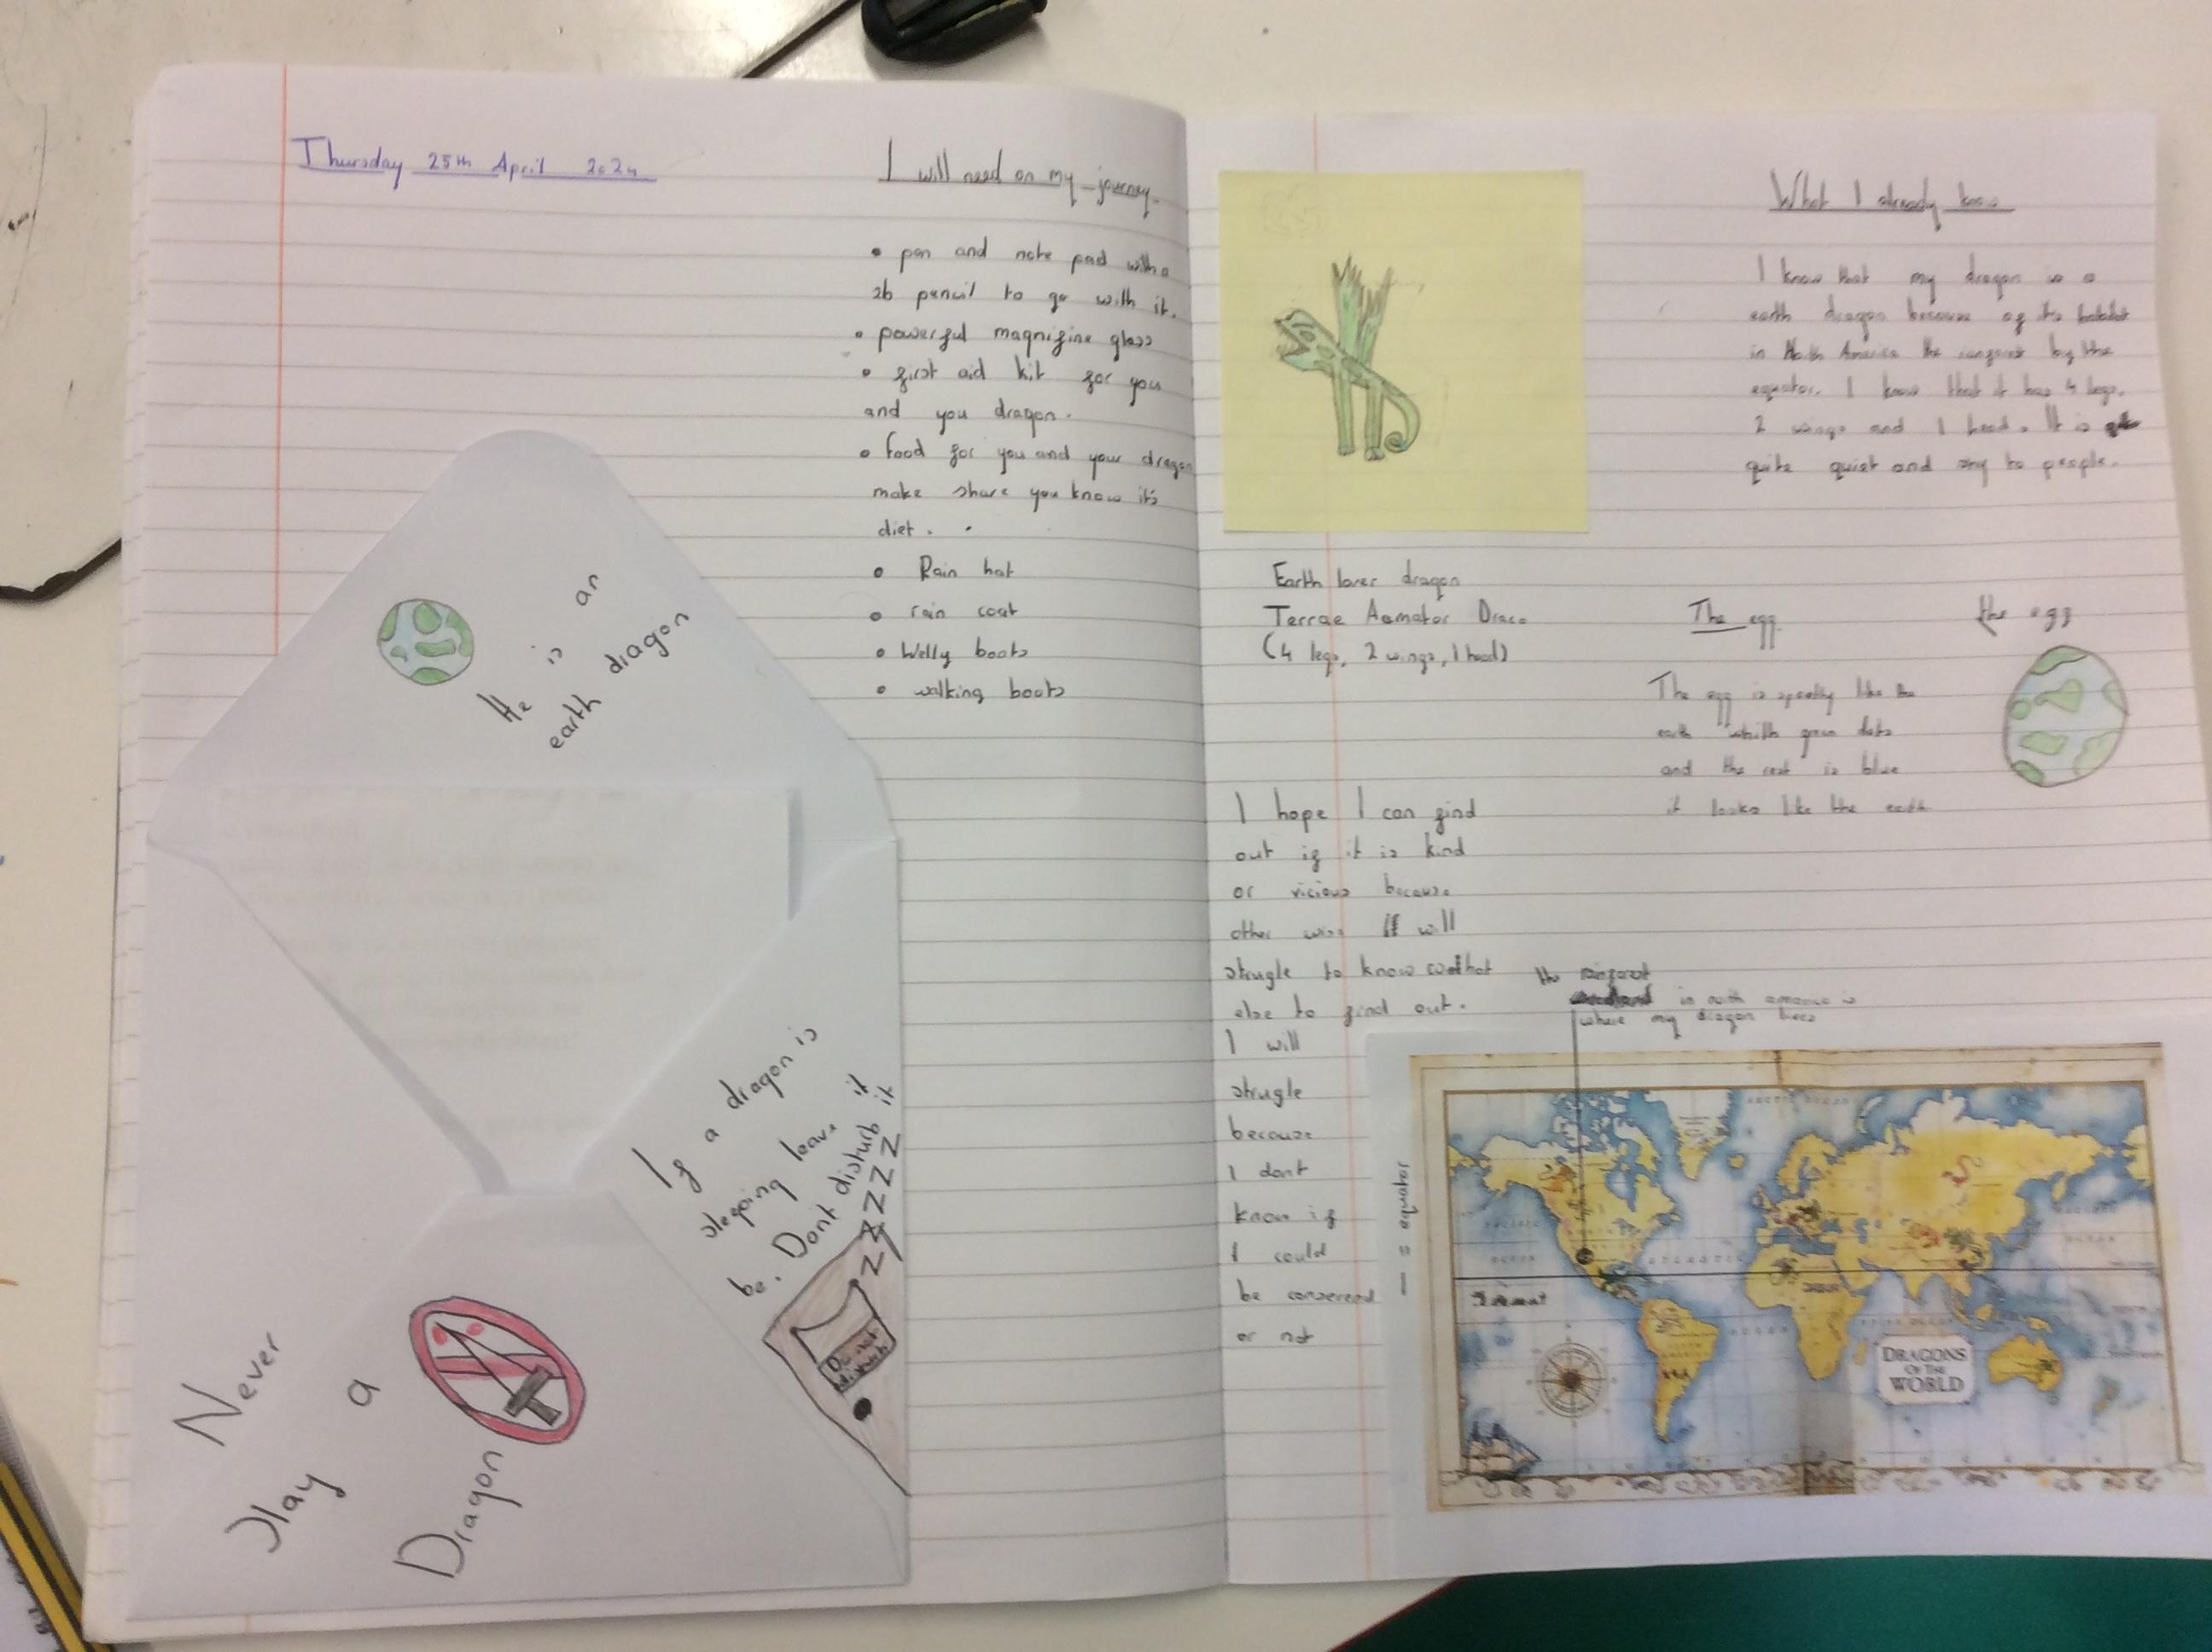 Thursday 25th April 2024
I will need on my journey.
• pen and note pad with a
2b pencil to go with it.
• powerful magnifine glass
• first aid kit for you
and you dragon.
• food for you and your dragon
make share you know it's
diet.
• Rain hat
• rain coat
• Welly boots
• walking boots
He is an
earth dragon
If a dragon is
sleeping leave it
be. Dont disturb it
ZZZZZZ
Do not
disturb
Never
slay a
Dragon
What I already know
I know that my dragon is a
earth dragon because of its habitat
in North America the rainforest by the
equator. I know that it has 4 legs,
2 wings and 1 head. It is
quite quiet and shy to people.
Earth lover dragon
Terrae Aamator Draco
(4 legs, 2 wings, 1 head)
The egg
The egg is spotty like the
earth green dots
and the rest is blue
it looks like the earth
the egg
I hope I can find
out if it is kind
or vicious because
other wise I will
strugle to know what
else to find out.
I will
strugle
because
I dont
know if
I could
be
or not
the rainforest
in north america is
where my dragon lives
— = equator
ARCTIC OCEAN
PACIFIC
OCEAN
ATLANTIC
DRAGONS
OF THE
WORLD